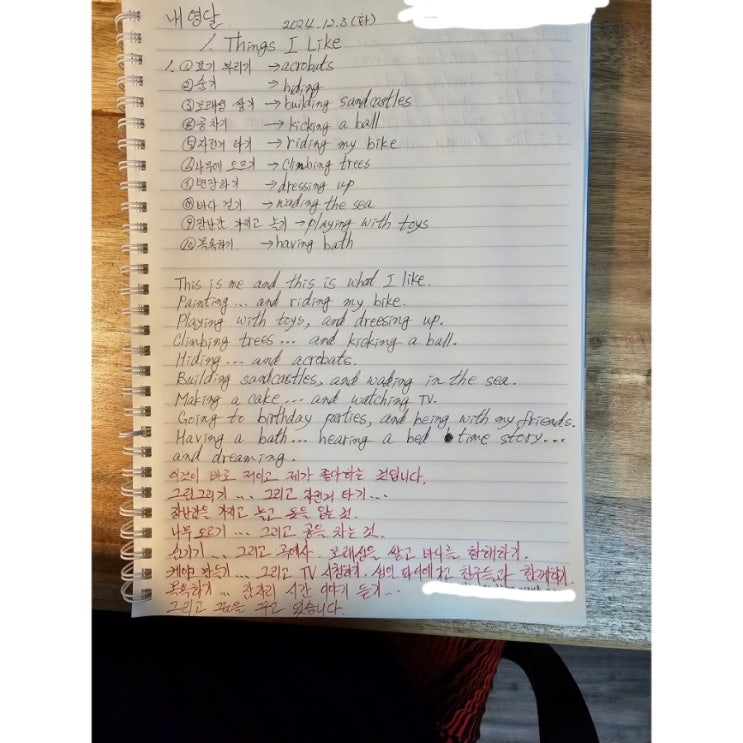 내 영달 2024.12.3(화)
1. Things I Like
1. ① 묘기 부리기 → acrobats
② 숨기 → hiding
③ 모래성 쌓기 → building sandcastles
④ 공차기 → kicking a ball
⑤ 자전거 타기 → riding my bike
⑥ 나무에 오르기 → climbing trees
⑦ 변장하기 → dressing up
⑧ 바다 걷기 → wading the sea
⑨ 장난감 가지고 놀기 → playing with toys
⑩ 목욕하기 → having bath
This is me and this is what I like.
Painting... and riding my bike.
Playing with toys, and dreesing up.
Climbing trees... and kicking a ball.
Hiding... and acrobats.
Building sandcastles, and wading in the sea.
Making a cake... and watching TV.
Going to birthday parties, and being with my friends.
Having a bath... hearing a bed time story...
and dreaming.
이것이 바로 저이고 제가 좋아하는 것입니다.
그림그리기... 그리고 자전거 타기...
장난감을 가지고 놀고 옷을 입는 것.
나무 오르기... 그리고 공을 차는 것.
숨기기... 그리고 곡예사. 모래산을 쌓고 바다를 항해하기.
케이크 만들기... 그리고 TV 시청하기. 생일 파티에 가고 친구들과 함께하기.
목욕하기... 잠자리 시간 이야기 듣기...
그리고 꿈을 꾸고 있습니다.